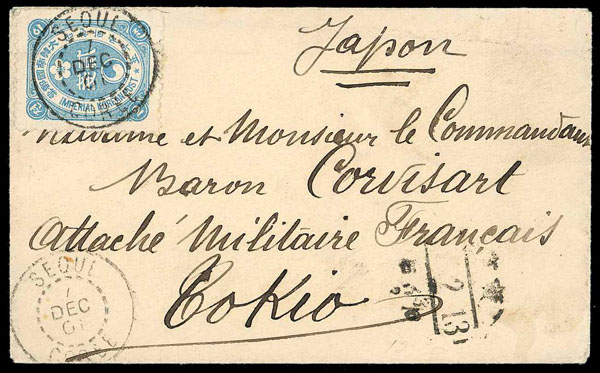 SEOUL
7
DEC
01
IMPERIAL KOREAN POST
Japon
Madame et Monsieur le Commandant
Baron Corvisart
Attaché Militaire Français
Tokio
SEOUL
7
DEC
01
COREE
2
13